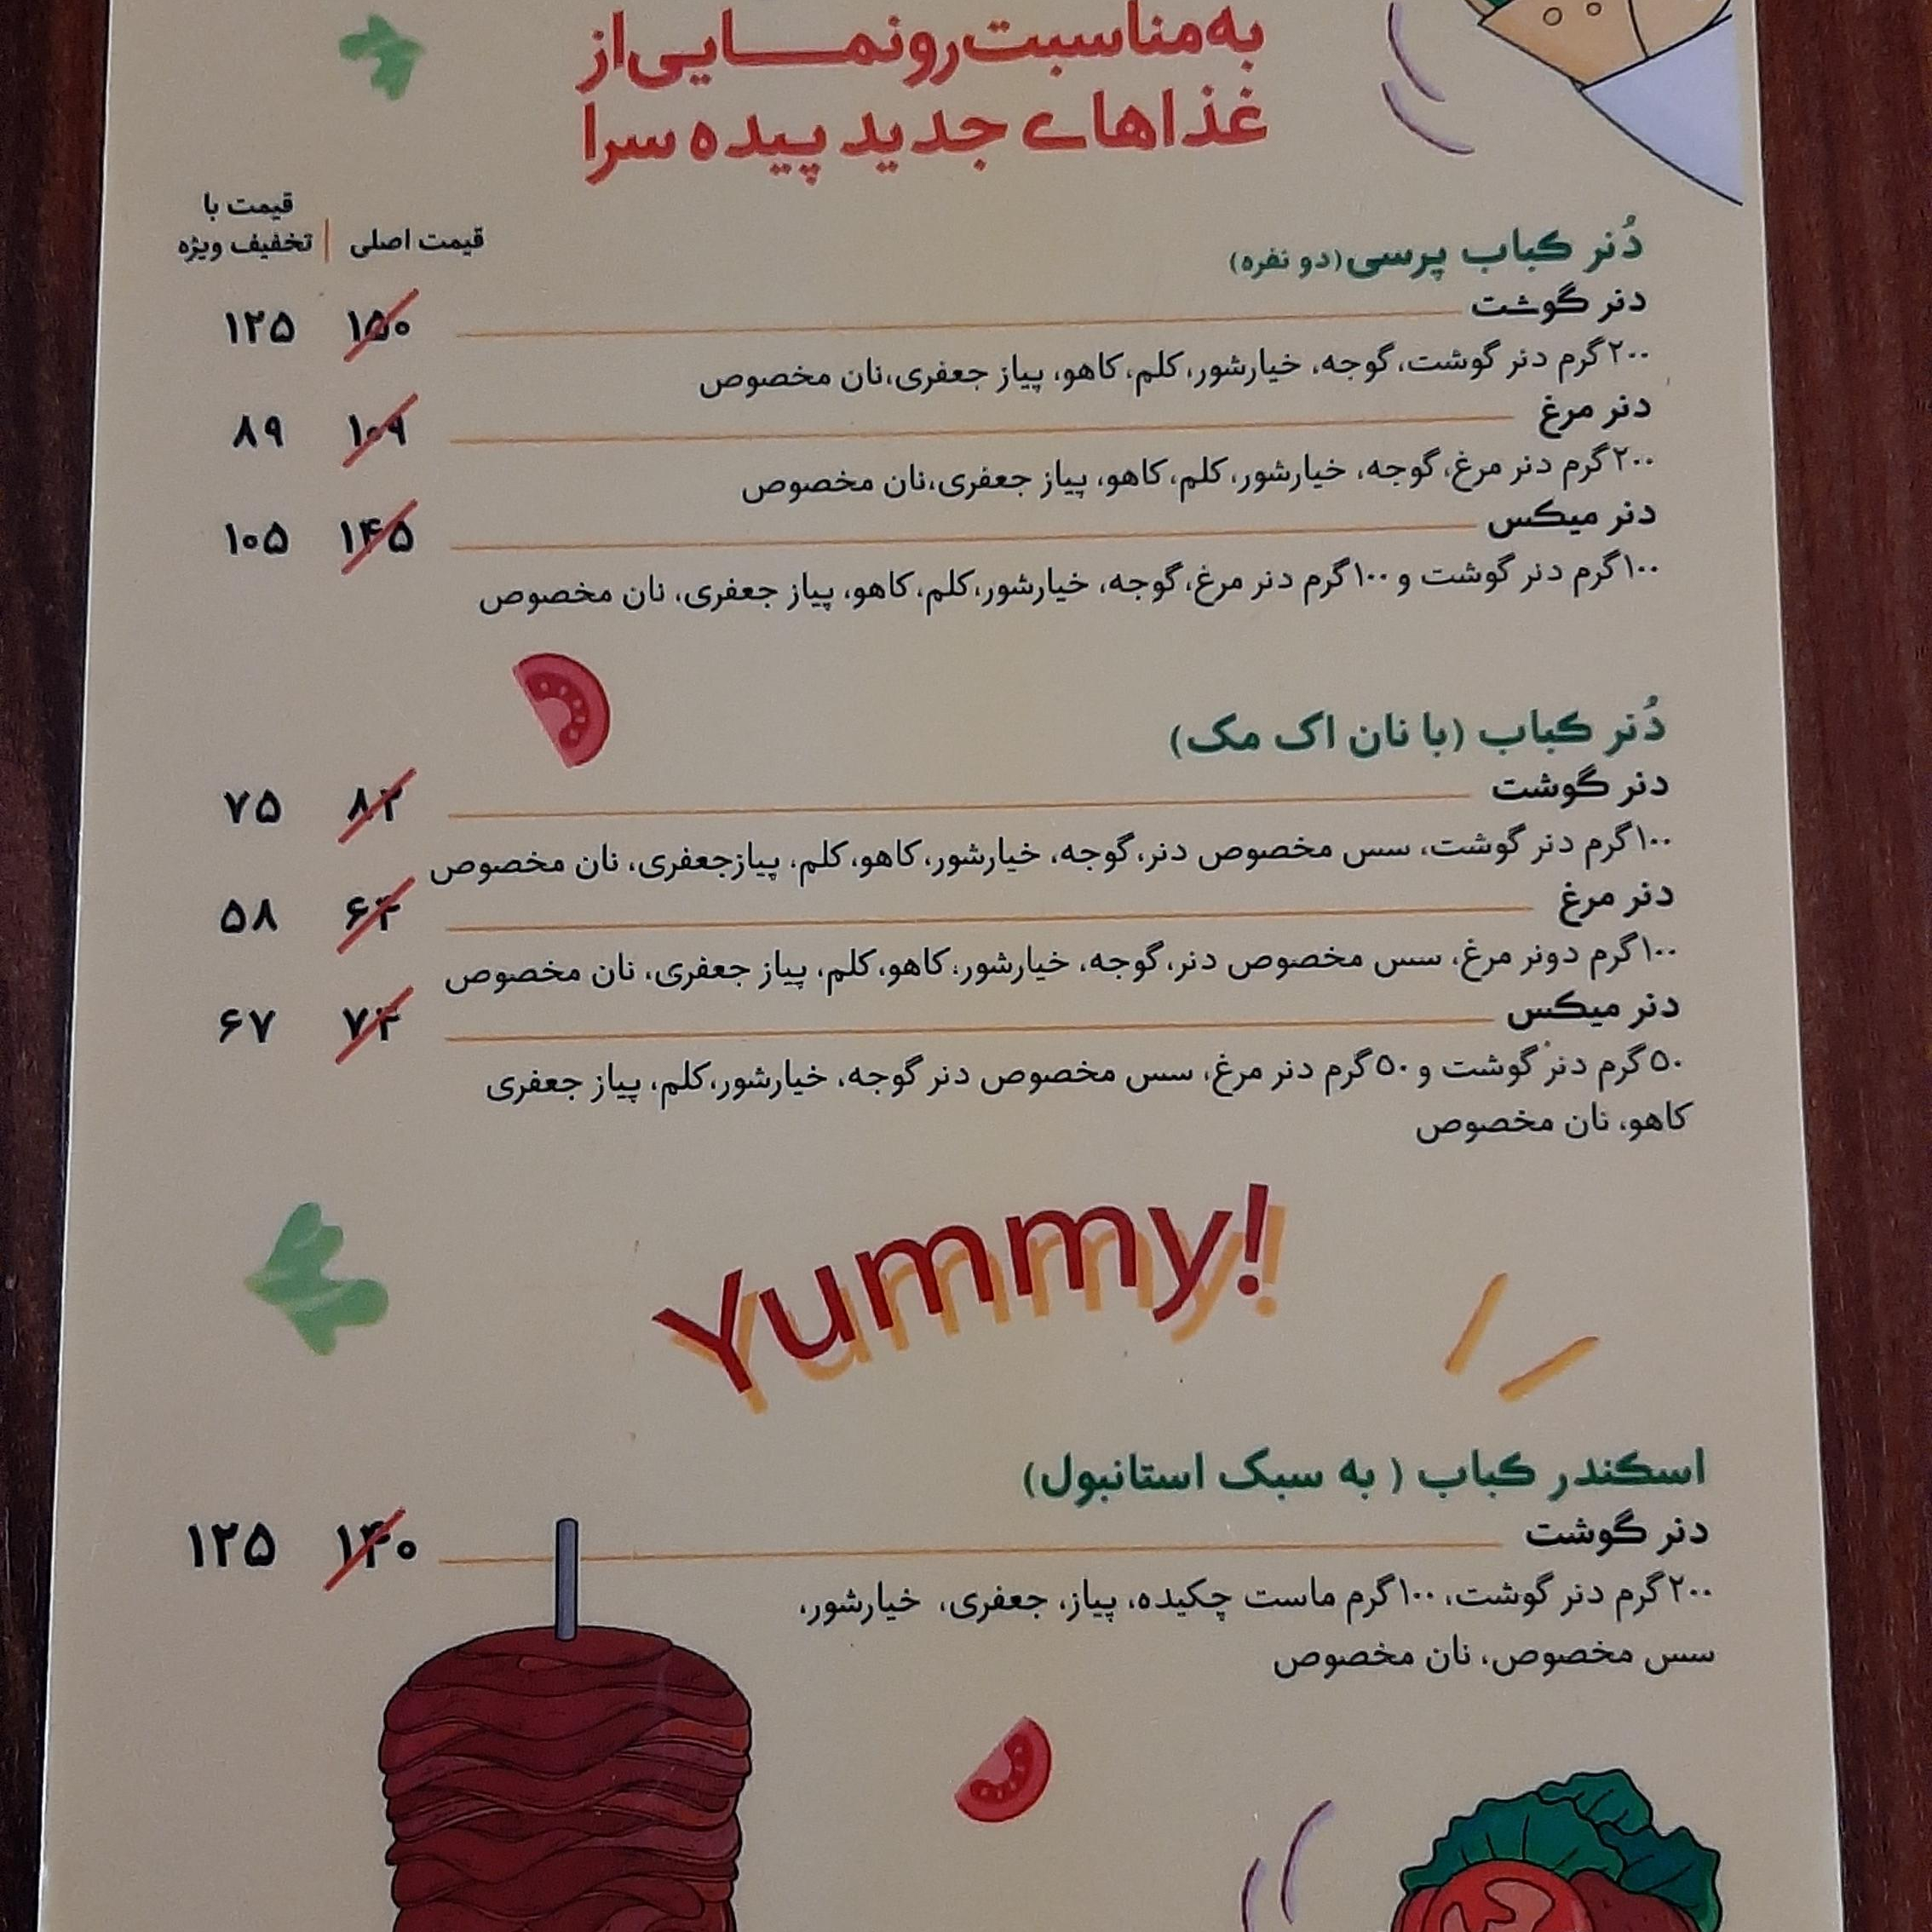 به مناسبت رونمایی از
غذاهای جدید پیده سرا
قیمت اصلی | قیمت با تخفیف ویژه
دُنر کباب پرسی (دو نفره)
دنر گوشت ۱۵۰ ۱۲۵
۲۰۰ گرم دنر گوشت، گوجه، خیارشور، کلم، کاهو، پیاز جعفری، نان مخصوص
دنر مرغ ۱۰۹ ۸۹
۲۰۰ گرم دنر مرغ، گوجه، خیارشور، کلم، کاهو، پیاز جعفری، نان مخصوص
دنر میکس ۱۴۵ ۱۰۵
۱۰۰ گرم دنر گوشت و ۱۰۰ گرم دنر مرغ، گوجه، خیارشور، کلم، کاهو، پیاز جعفری، نان مخصوص
دُنر کباب (با نان اک مک)
دنر گوشت ۸۲ ۷۵
۱۰۰ گرم دنر گوشت، سس مخصوص دنر، گوجه، خیارشور، کاهو، کلم، پیازجعفری، نان مخصوص
دنر مرغ ۶۴ ۵۸
۱۰۰ گرم دونر مرغ، سس مخصوص دنر، گوجه، خیارشور، کاهو، کلم، پیاز جعفری، نان مخصوص
دنر میکس ۷۴ ۶۷
۵۰ گرم دنر گوشت و ۵۰ گرم دنر مرغ، سس مخصوص دنر گوجه، خیارشور، کلم، پیاز جعفری
کاهو، نان مخصوص
Yummy!
اسکندر کباب ( به سبک استانبول)
دنر گوشت ۱۴۰ ۱۲۵
۲۰۰ گرم دنر گوشت، ۱۰۰ گرم ماست چکیده، پیاز، جعفری، خیارشور،
سس مخصوص، نان مخصوص